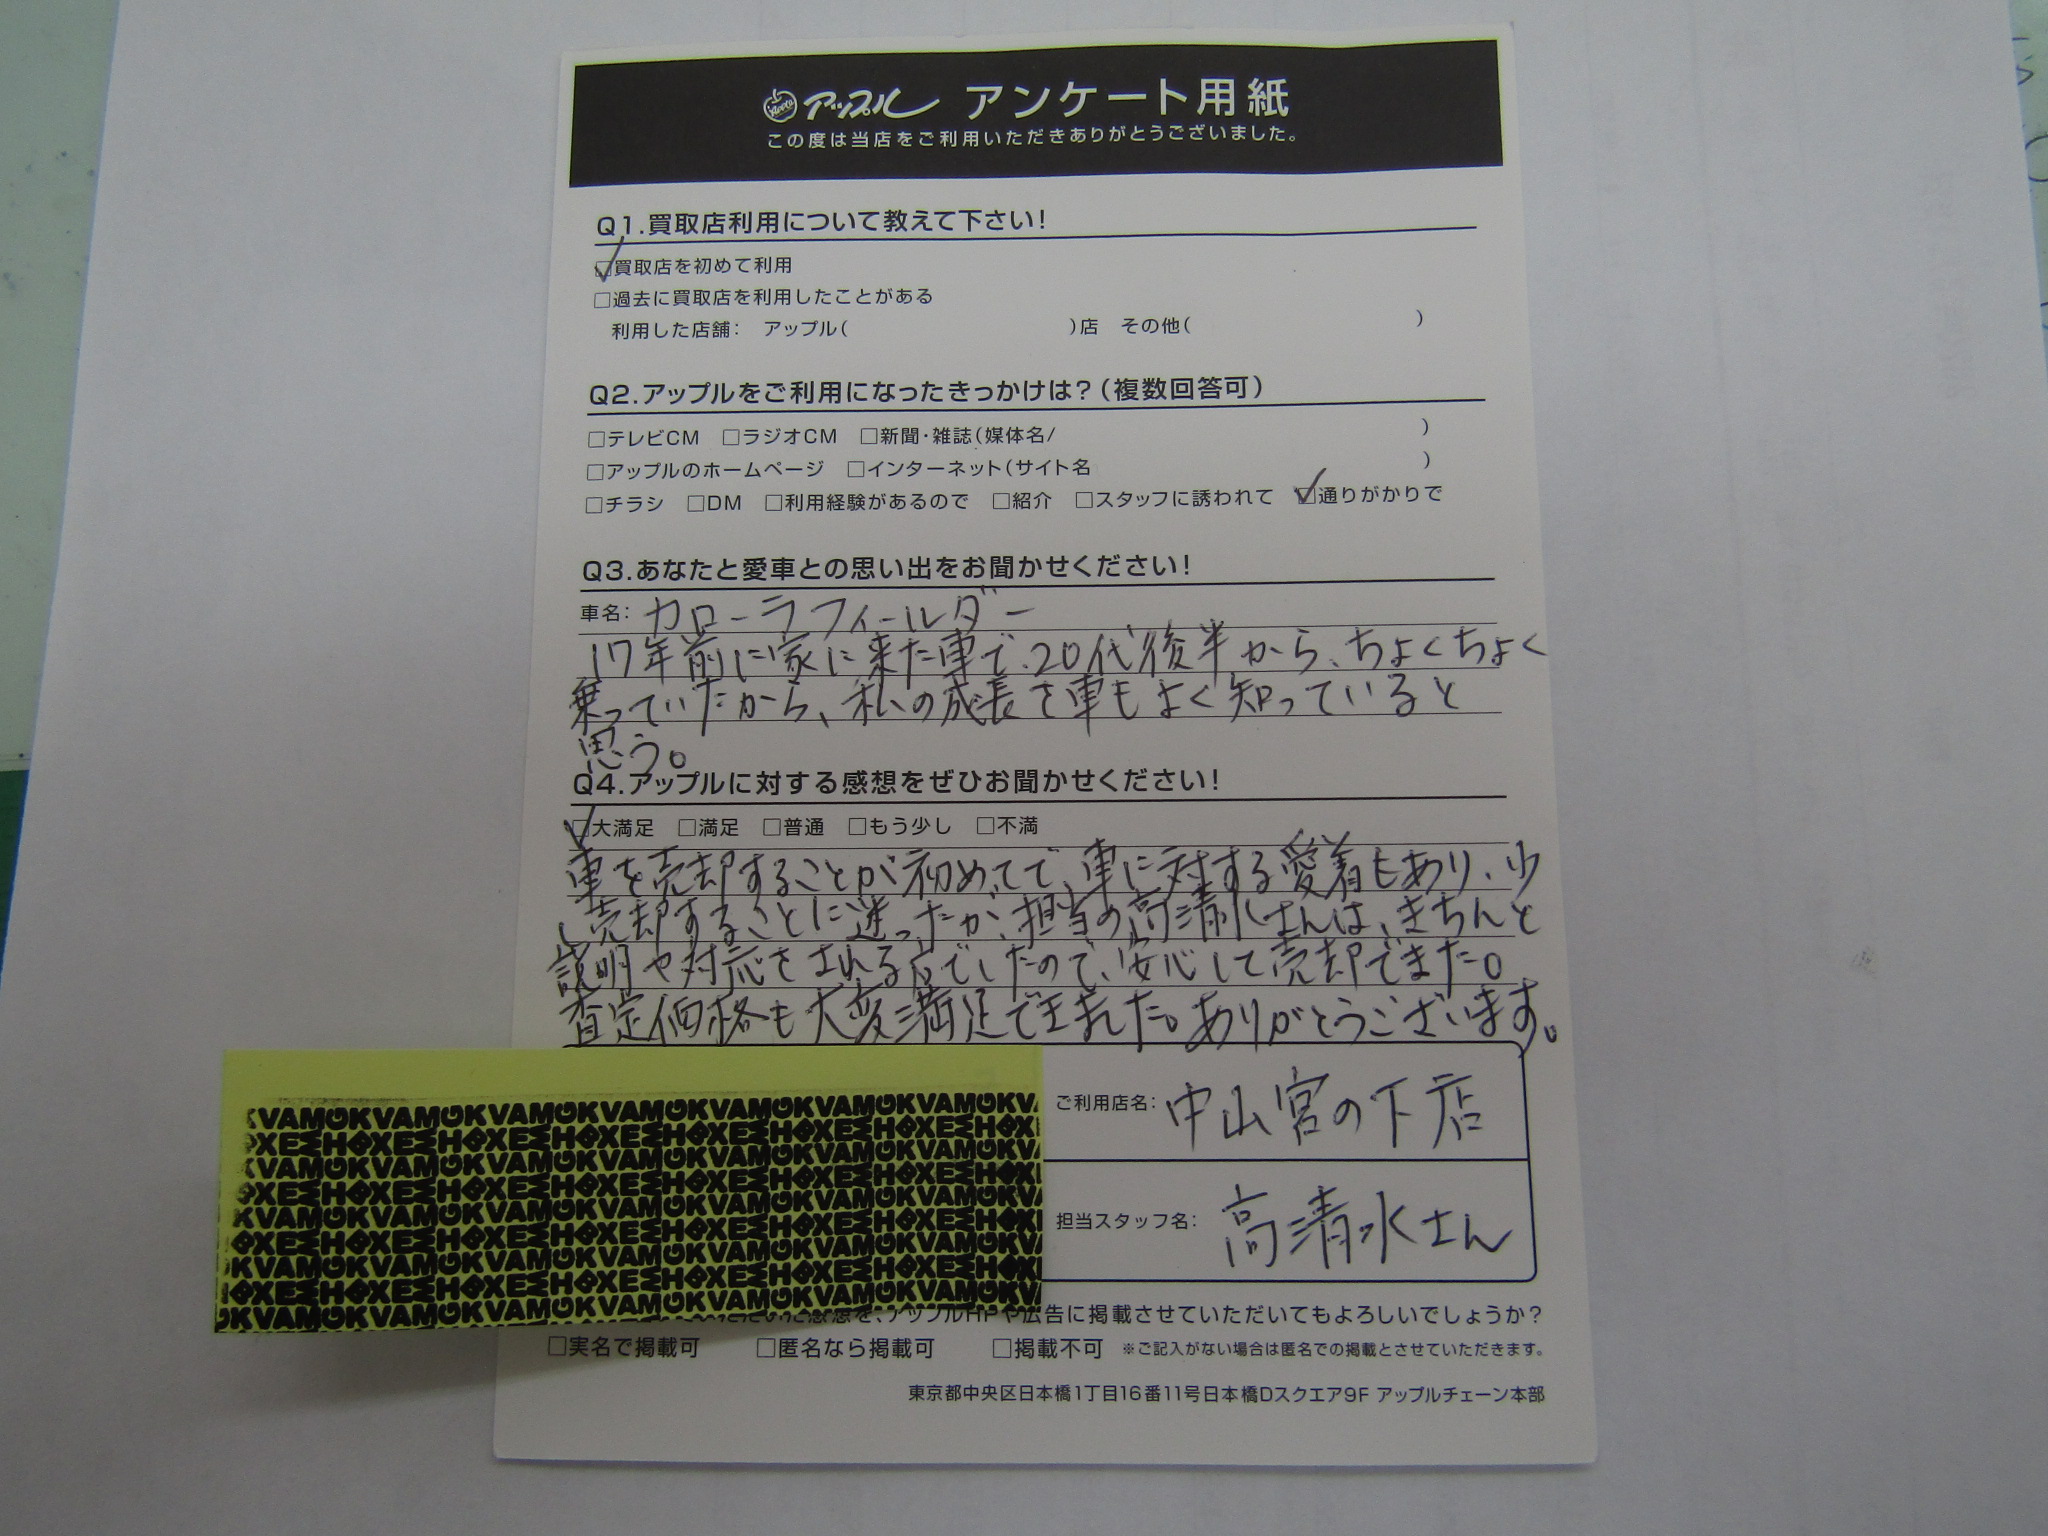 Apple アップル アンケート用紙
この度は当店をご利用いただきありがとうございました。
Q1.買取店利用について教えて下さい!
☑買取店を初めて利用
□過去に買取店を利用したことがある
利用した店舗: アップル( )店 その他( )
Q2.アップルをご利用になったきっかけは?(複数回答可)
□テレビCM □ラジオCM □新聞・雑誌(媒体名/ )
□アップルのホームページ □インターネット(サイト名 )
□チラシ □DM □利用経験があるので □紹介 □スタッフに誘われて ☑通りがかりで
Q3.あなたと愛車との思い出をお聞かせください!
車名: カローラフィールダー
17年前に家に来た車で、20代後半から、ちょくちょく
乗っていたから、私の成長を車もよく知っていると
思う。
Q4.アップルに対する感想をぜひお聞かせください!
☑大満足 □満足 □普通 □もう少し □不満
車を売却することが初めてで、車に対する愛着もあり、少
し売却することに迷ったが、担当の高清水さんは、きちんと
説明や対応をされる店でしたので、安心して売却できた。
査定価格も大変満足できました。ありがとうございます。
ご利用店名: 中山宮の下店
担当スタッフ名: 高清水さん
感想を、アップルHPや広告に掲載させていただいてもよろしいでしょうか?
□実名で掲載可 □匿名なら掲載可 □掲載不可 ※ご記入がない場合は匿名での掲載とさせていただきます。
東京都中央区日本橋1丁目16番11号日本橋Dスクエア9F アップルチェーン本部